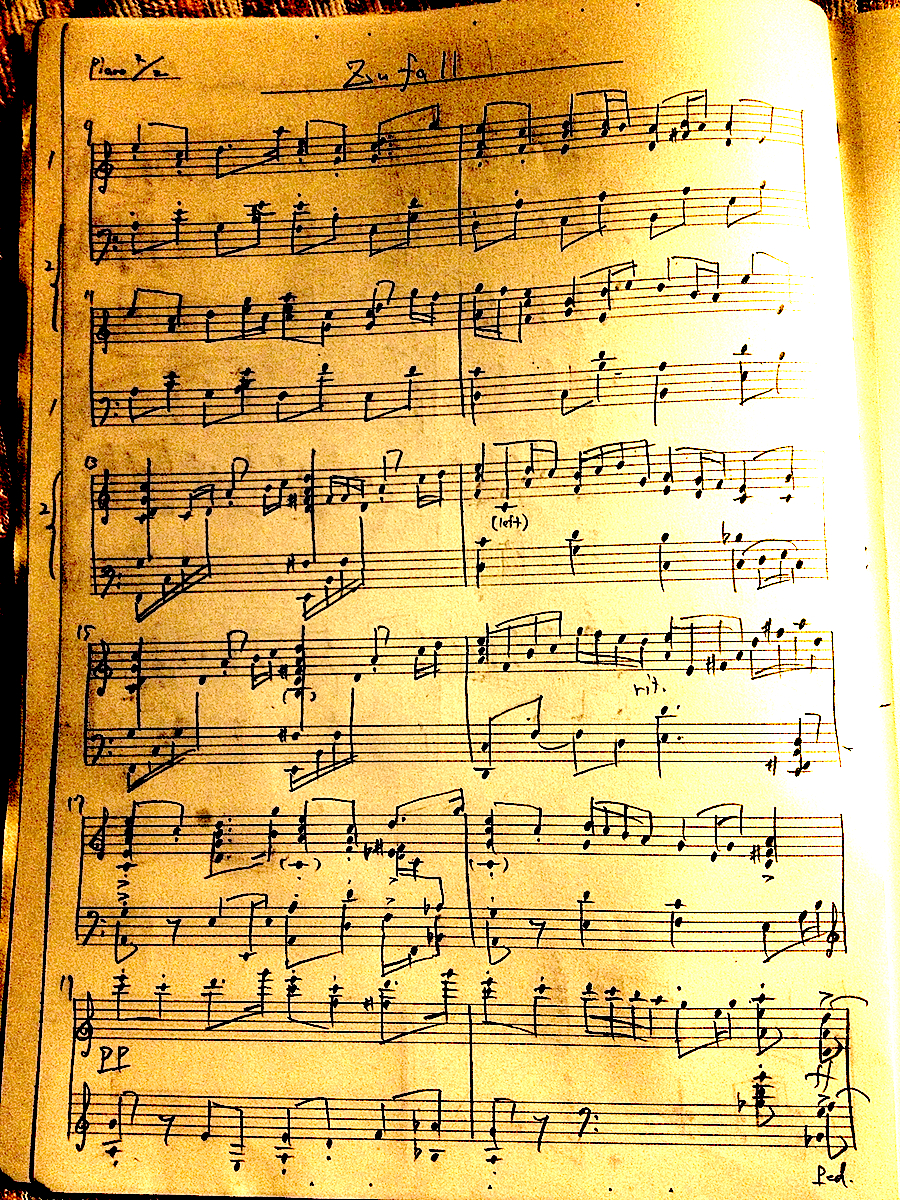 Piano 2/2
Zufall
9
1
2
11
1
13
2
(left)
15
rit.
17
19
pp
ff
Ped.